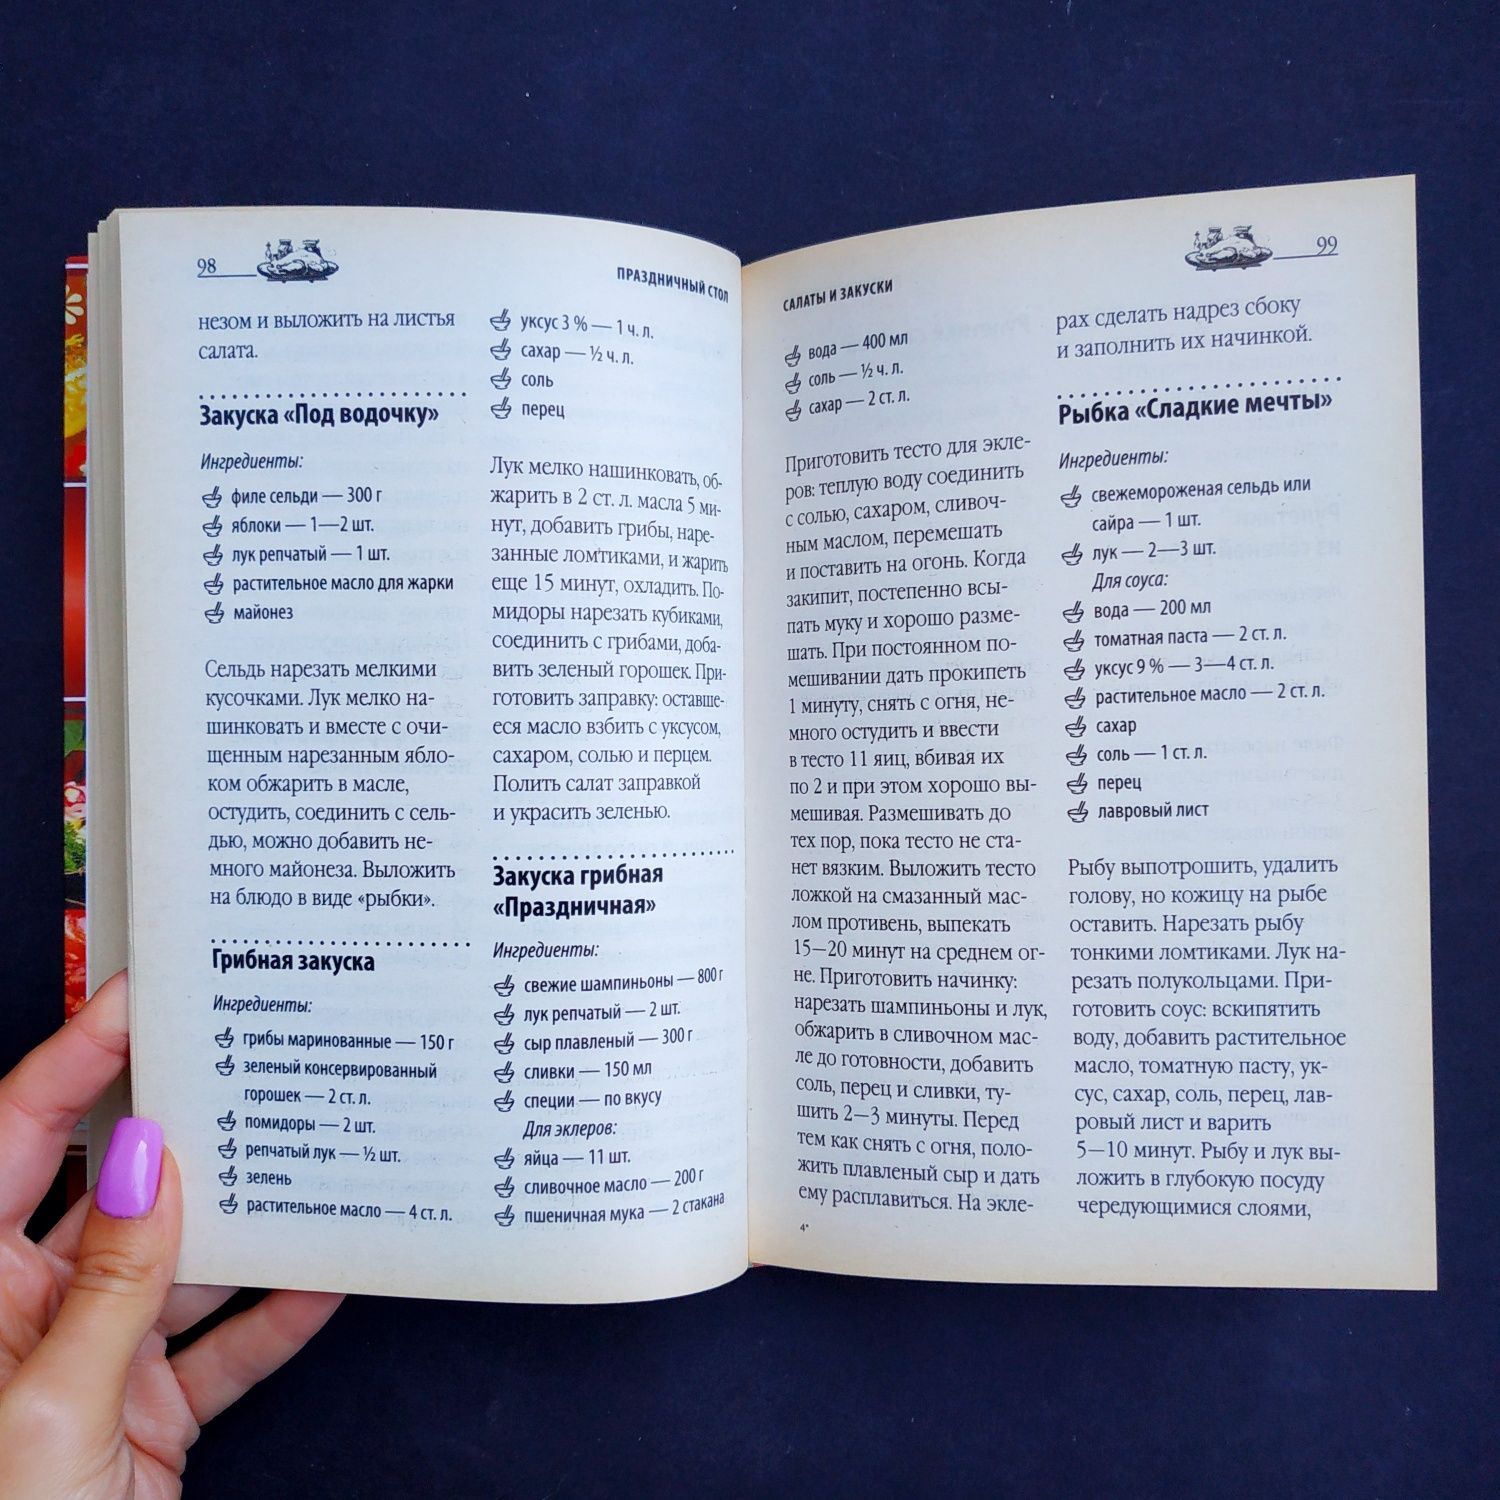 98
ПРАЗДНИЧНЫЙ СТОЛ
незом и выложить на листья
салата.
Закуска «Под водочку»
Ингредиенты:
филе сельди — 300 г
яблоки — 1—2 шт.
лук репчатый — 1 шт.
растительное масло для жарки
майонез
Сельдь нарезать мелкими
кусочками. Лук мелко на-
шинковать и вместе с очи-
щенным нарезанным ябло-
ком обжарить в масле,
остудить, соединить с сель-
дью, можно добавить не-
много майонеза. Выложить
на блюдо в виде «рыбки».
Грибная закуска
Ингредиенты:
грибы маринованные — 150 г
зеленый консервированный
горошек — 2 ст. л.
помидоры — 2 шт.
репчатый лук — ½ шт.
зелень
растительное масло — 4 ст. л.
уксус 3 % — 1 ч. л.
сахар — ½ ч. л.
соль
перец
Лук мелко нашинковать, об-
жарить в 2 ст. л. масла 5 ми-
нут, добавить грибы, наре-
занные ломтиками, и жарить
еще 15 минут, охладить. По-
мидоры нарезать кубиками,
соединить с грибами, доба-
вить зеленый горошек. При-
готовить заправку: оставше-
еся масло взбить с уксусом,
сахаром, солью и перцем.
Полить салат заправкой
и украсить зеленью.
Закуска грибная
«Праздничная»
Ингредиенты:
свежие шампиньоны — 800 г
лук репчатый — 2 шт.
сыр плавленый — 300 г
сливки — 150 мл
специи — по вкусу
Для эклеров:
яйца — 11 шт.
сливочное масло — 200 г
пшеничная мука — 2 стакана
САЛАТЫ И ЗАКУСКИ
99
вода — 400 мл
соль — ½ ч. л.
сахар — 2 ст. л.
Приготовить тесто для экле-
ров: теплую воду соединить
с солью, сахаром, сливоч-
ным маслом, перемешать
и поставить на огонь. Когда
закипит, постепенно всы-
пать муку и хорошо разме-
шать. При постоянном по-
мешивании дать прокипеть
1 минуту, снять с огня, не-
много остудить и ввести
в тесто 11 яиц, вбивая их
по 2 и при этом хорошо вы-
мешивая. Размешивать до
тех пор, пока тесто не ста-
нет вязким. Выложить тесто
ложкой на смазанный мас-
лом противень, выпекать
15—20 минут на среднем ог-
не. Приготовить начинку:
нарезать шампиньоны и лук,
обжарить в сливочном мас-
ле до готовности, добавить
соль, перец и сливки, ту-
шить 2—3 минуты. Перед
тем как снять с огня, поло-
жить плавленый сыр и дать
ему расплавиться. На экле-
4*
рах сделать надрез сбоку
и заполнить их начинкой.
Рыбка «Сладкие мечты»
Ингредиенты:
свежемороженая сельдь или
сайра — 1 шт.
лук — 2—3 шт.
Для соуса:
вода — 200 мл
томатная паста — 2 ст. л.
уксус 9 % — 3—4 ст. л.
растительное масло — 2 ст. л.
сахар
соль — 1 ст. л.
перец
лавровый лист
Рыбу выпотрошить, удалить
голову, но кожицу на рыбе
оставить. Нарезать рыбу
тонкими ломтиками. Лук на-
резать полукольцами. При-
готовить соус: вскипятить
воду, добавить растительное
масло, томатную пасту, ук-
сус, сахар, соль, перец, лав-
ровый лист и варить
5—10 минут. Рыбу и лук вы-
ложить в глубокую посуду
чередующимися слоями,